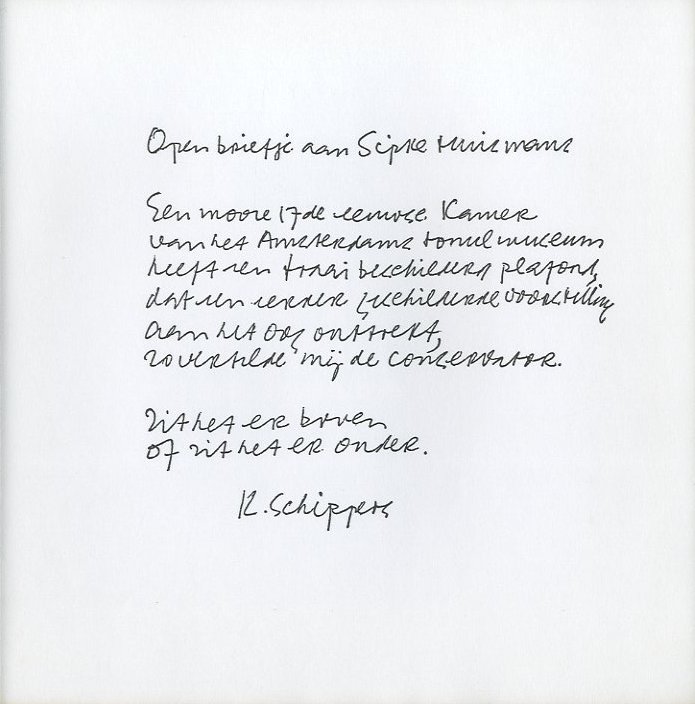 Open briefje aan Sipke Huismans
Een mooie 17de eeuwse kamer
van het Amsterdams toneelmuseum
heeft een fraai beschilderd plafond,
dat een eerder geschilderde voorstelling
aan het oog onttrekt,
zo vertelde mij de conservator.
Zit het er boven
of zit het er onder.
K. Schippers